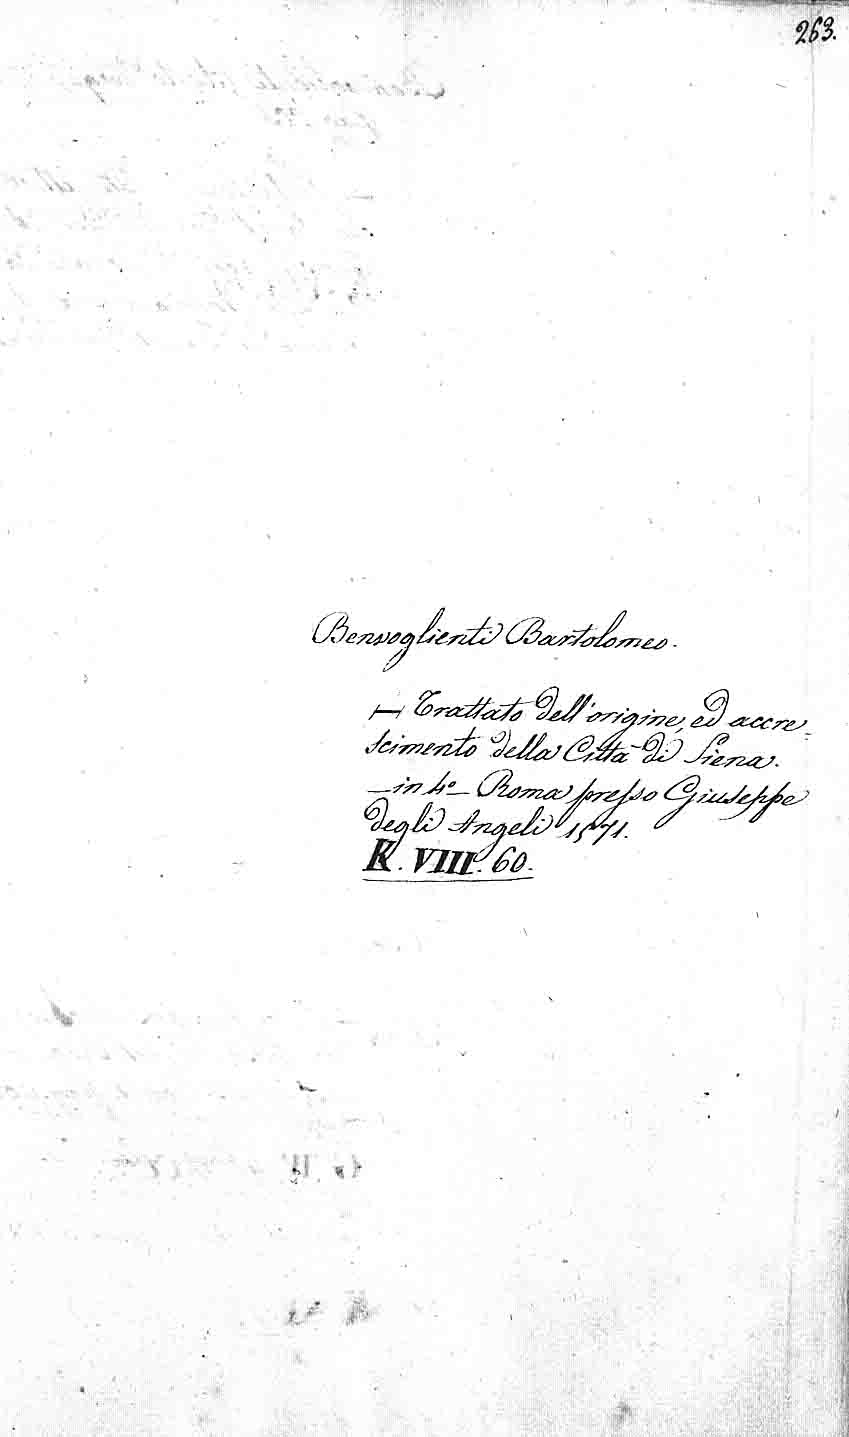 263.
Benvoglienti Bartolomeo.
— Trattato dell'origine, ed accre-
scimento della Città di Siena.
— in 4° — Roma presso Giuseppe
degli Angeli 1571.
K. VIII. 60.